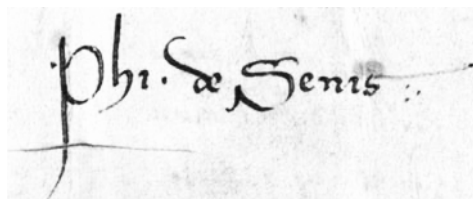 ·phi· de Senis